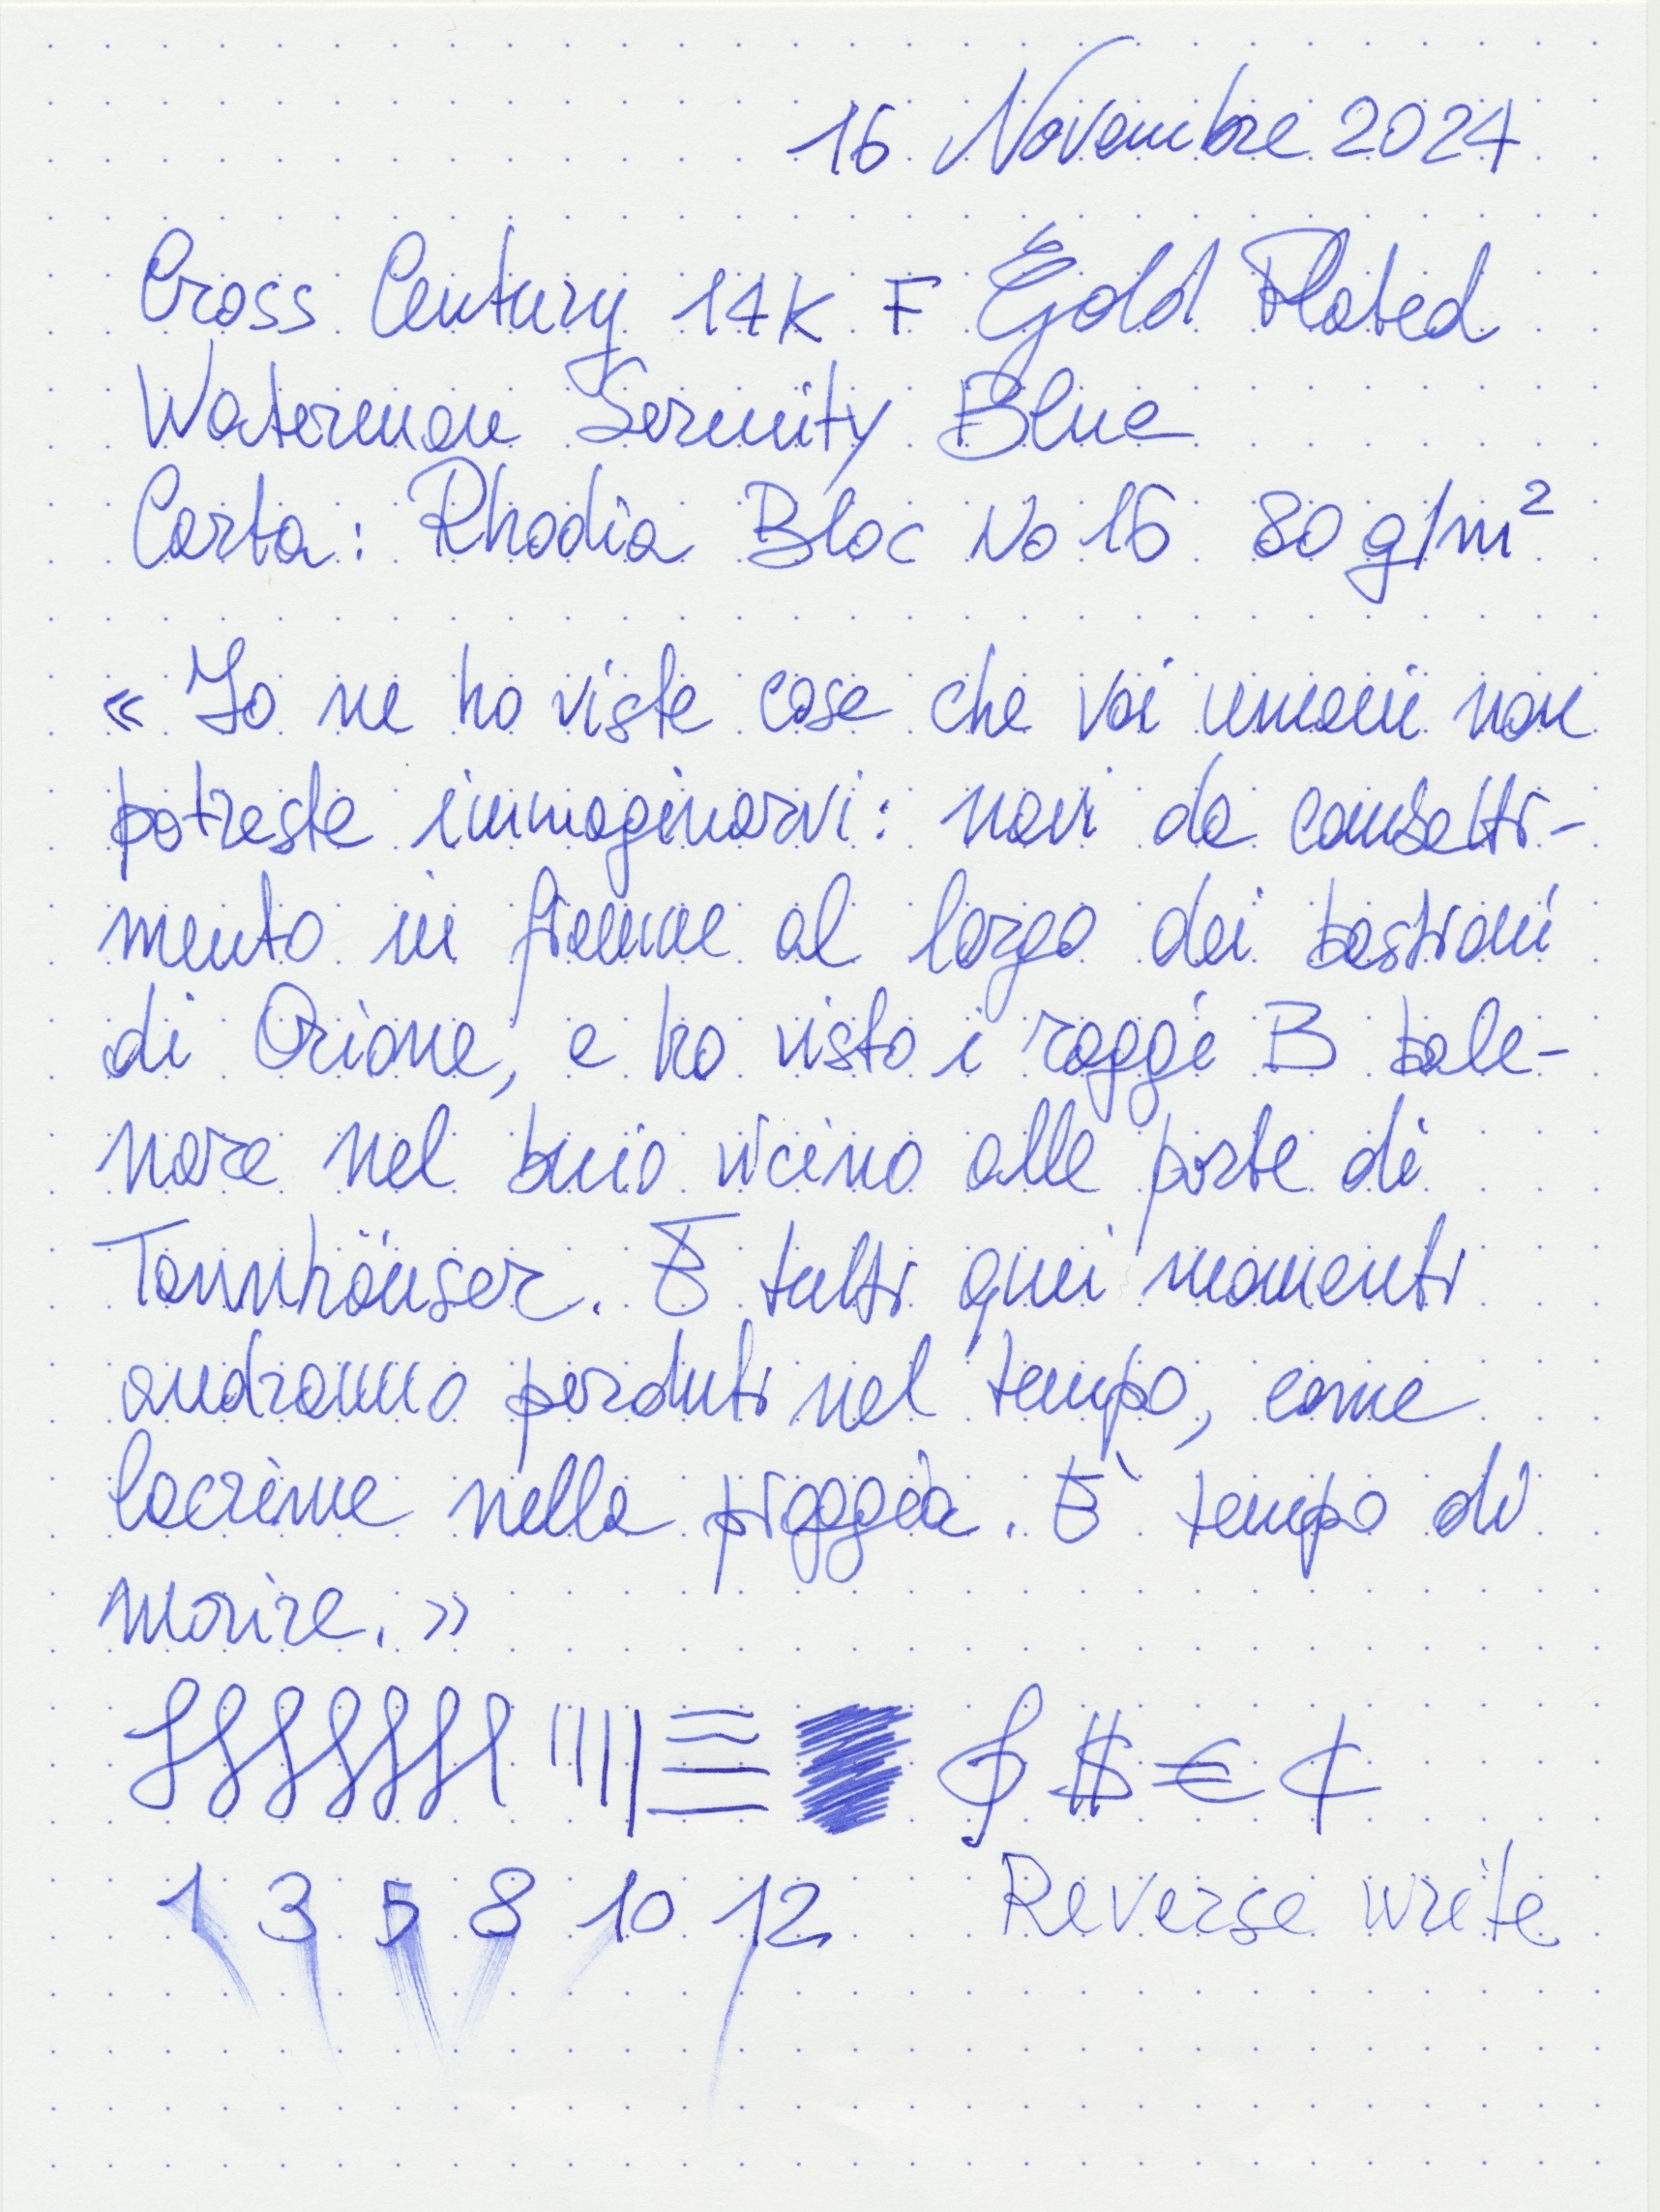 16 Novembre 2024
Cross Century 14K F Gold Plated
Waterman Serenity Blue
Carta: Rhodia Bloc No 16 80 g/m²
« Io ne ho viste cose che voi umani non
potreste immaginarvi: navi da combatti-
mento in fiamme al largo dei bastioni
di Orione, e ho visto i raggi B bale-
nare nel buio vicino alle porte di
Tannhäuser. E tutti quei momenti
andranno perduti nel tempo, come
lacrime nella pioggia. È tempo di
morire. »
$ € ¢
1 3 5 8 10 12 Reverse write